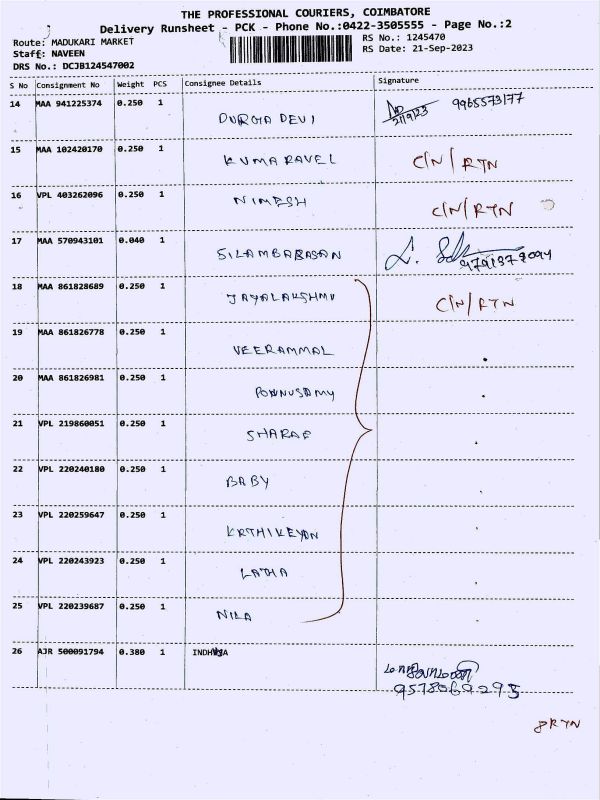 THE PROFESSIONAL COURIERS, COIMBATORE
Delivery Runsheet - PCK - Phone No.:0422-3505555 - Page No.:2
Route: MADUKARI MARKET RS No.: 1245470
Staff: NAVEEN RS Date: 21-Sep-2023
DRS No.: DCJB124547002
S No Consignment No Weight PCS Consignee Details Signature
14 MAA 941225374 0.250 1 DURGA DEVI 21/9/23 9965573177
15 MAA 102420170 0.250 1 KUMARAVEL C/N/RTN
16 VPL 403262096 0.250 1 NIMESH C/N/RTN
17 MAA 570943101 0.040 1 SILAMBARASAN
18 MAA 861828689 0.250 1 JAYALAKSHMI C/N/RTN
19 MAA 861826778 0.250 1 VEERAMMAL
20 MAA 861826981 0.250 1 PONNUSAMY
21 VPL 219860051 0.250 1 SHARAF
22 VPL 220240180 0.250 1 BABY
23 VPL 220259647 0.250 1 KRTHIKEYAN
24 VPL 220243923 0.250 1 LATHA
25 VPL 220239687 0.250 1 NILA
26 AJR 500091794 0.380 1
9578069295
8 RTN